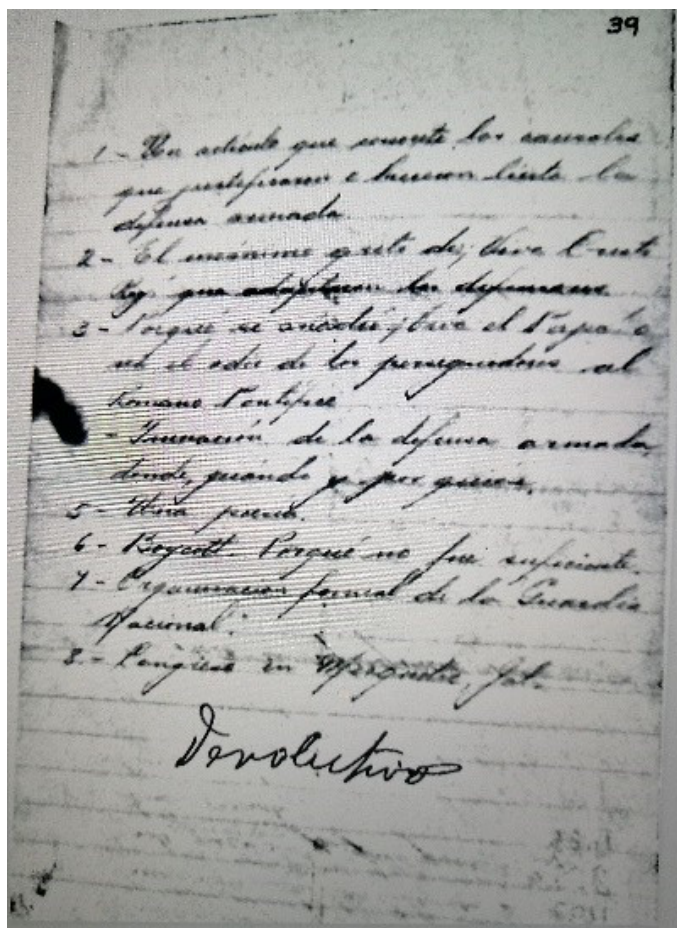 39
1 - Un artículo que comente las causales
que justificaron e hicieron lícita la
defensa armada.
2 - El unánime grito de, Viva Cristo
Rey que adoptaron los defensores.
3 - Porqué se añadió ¡Viva el Papa! o
sea el odio de los perseguidores al
Romano Pontífice
- Iniciación de la defensa armada,
donde, quando y por quien.
5 - Una poesía.
6 - Boycott. Porqué no fue suficiente.
7 - Organización formal de la Guardia
Nacional.
8. - Congreso en Mezquitic, Jal.
Devolutivo